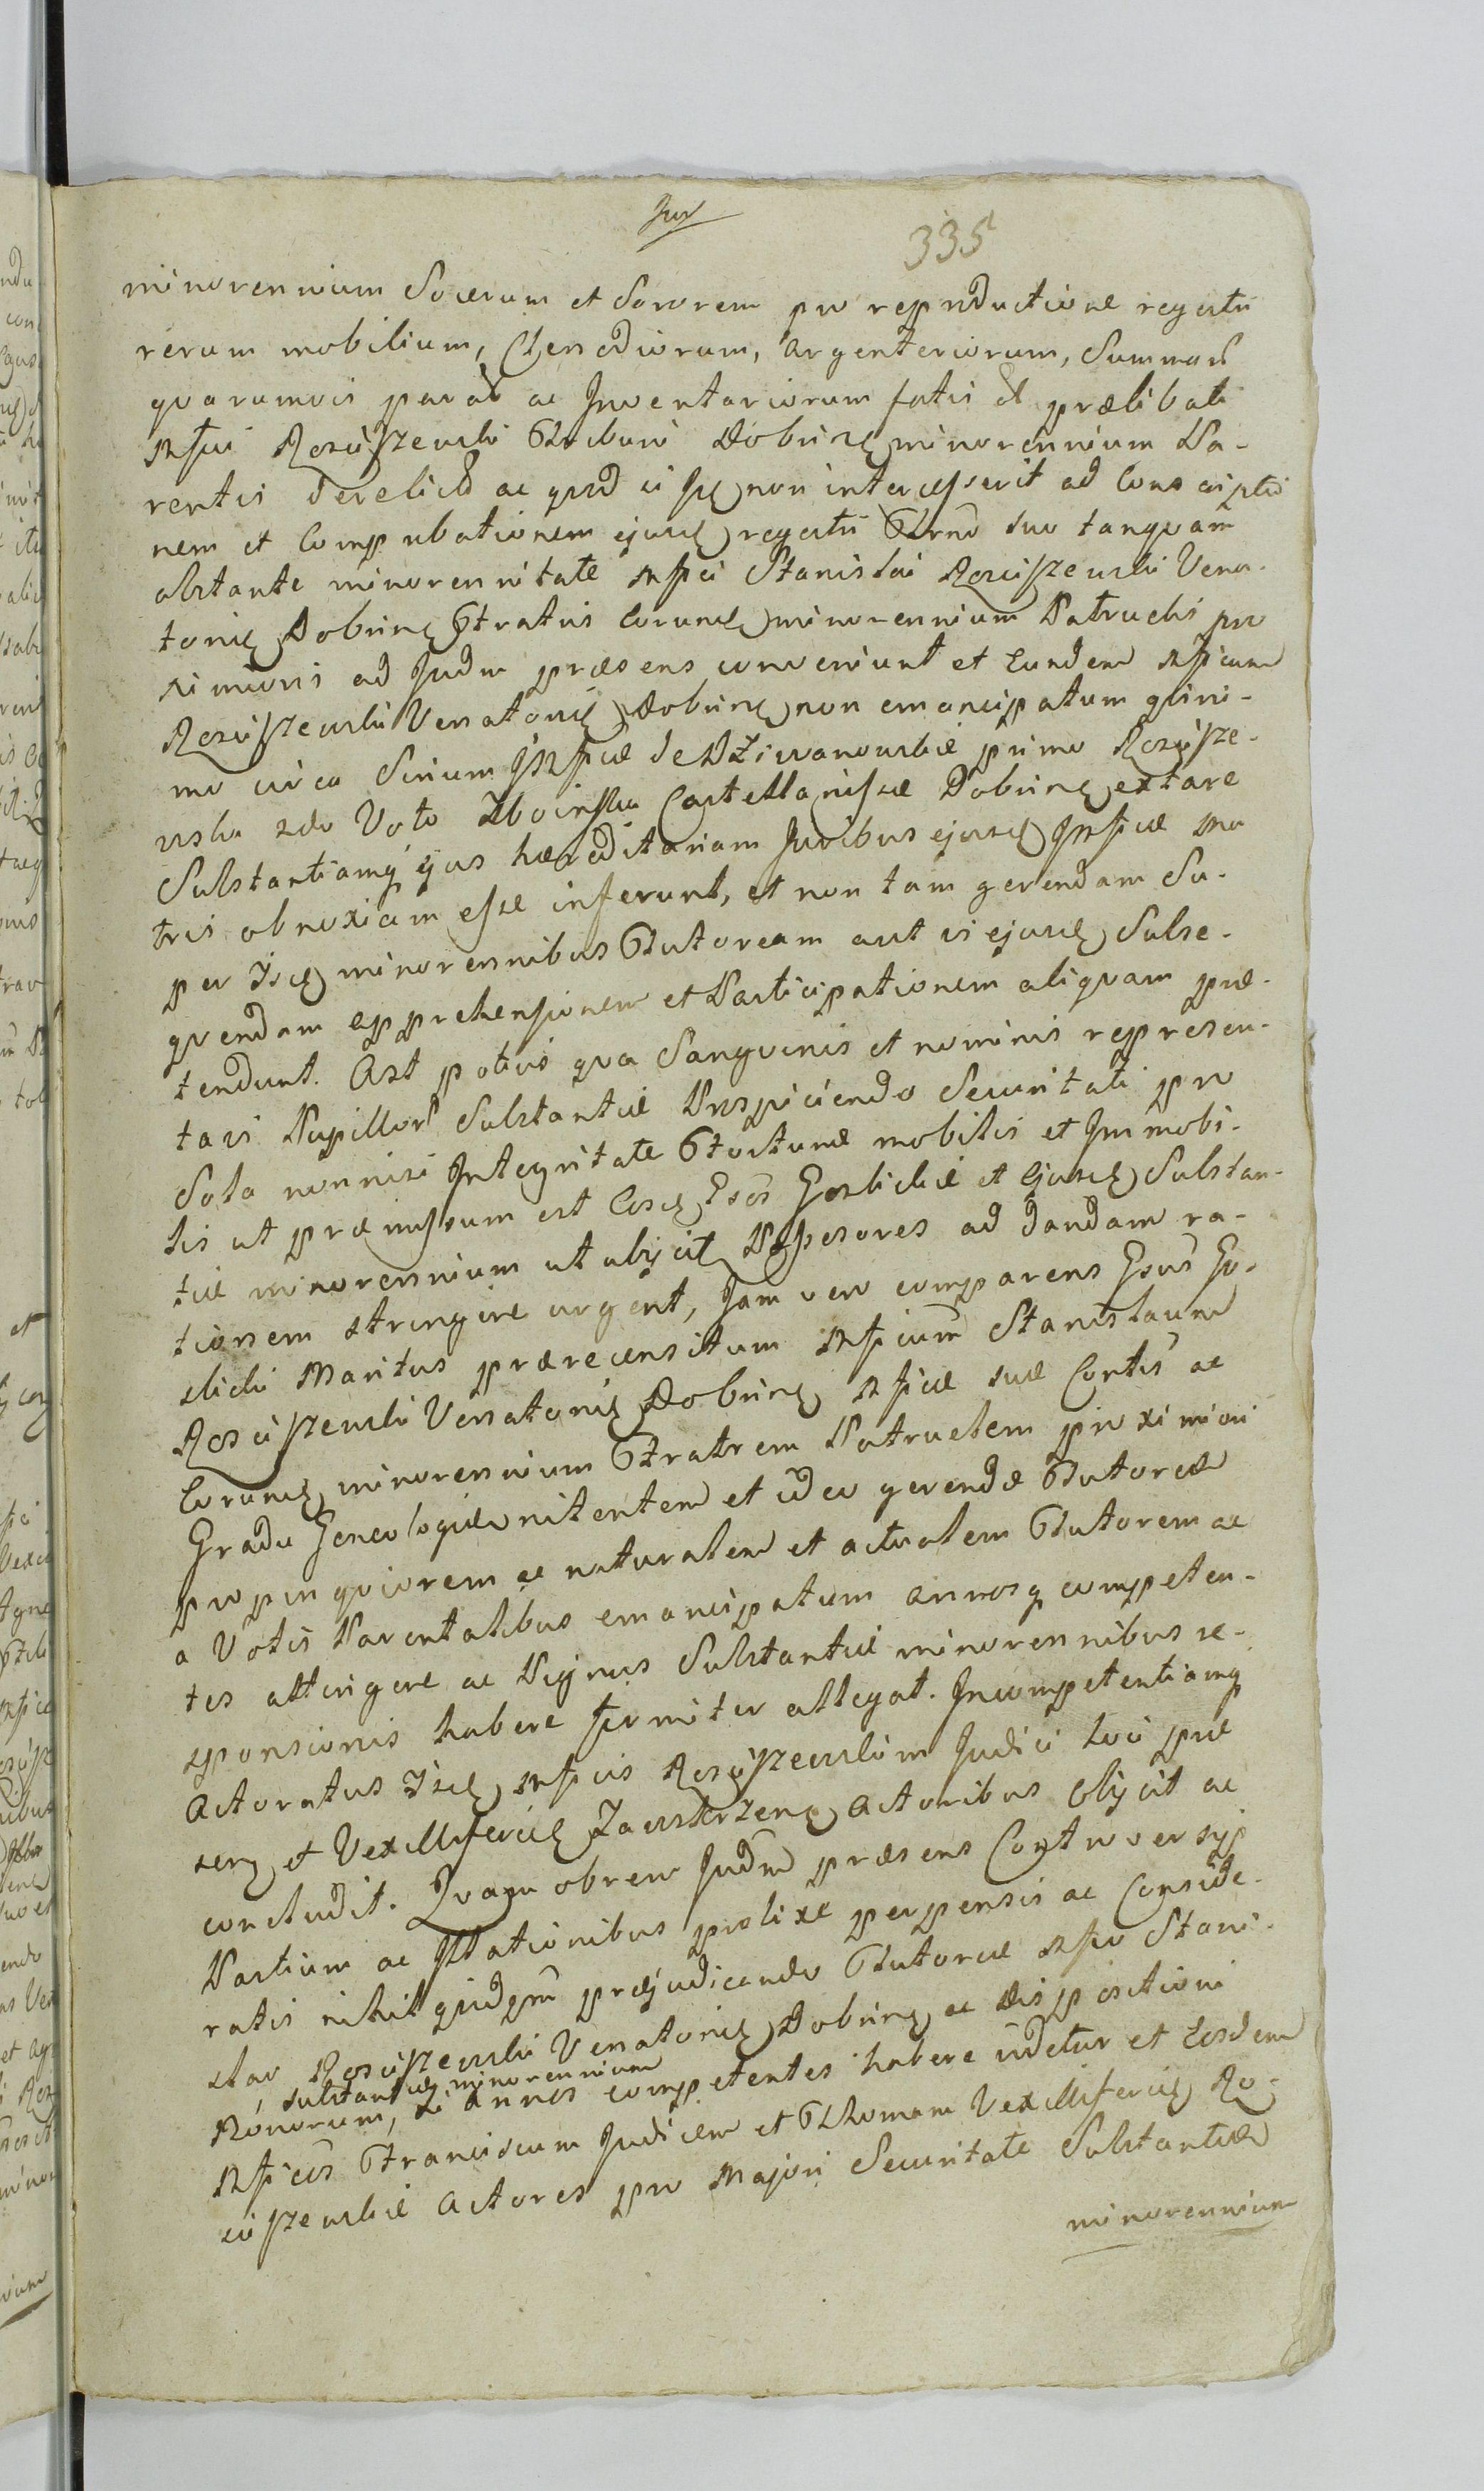 335
minorennium Socerum et Sororem pro reproductione regestri
rerum mobilium, Clenodiorum, argenteriorum, Summar
quarumvis parat ac Inventariorum fatis olim prælibati
Mfici Rościszewski Tribuni Dobrinen minorennium Pa-
rentis derelict ac quod ei non intercesserit ad Conscriptio
nem et Comprobationem ejusd regestri Frno suo tanquam
obstante minorennitate Mfici Stanislai Rościszewski Vena-
toris Dobrinen Fratris Eorund minorennium Patruelis pro
ximioris ad Judm præsens conveniunt et Eundem Mficum
Rościszewski Venatorid Dobrinen non emancipatum
mo circa Sinum Mficæ de Dziwanowskie primo Rościsze-
wska 2do Voto Zboinska Castellanissæ Dobrinen extare
Substantiamq ejus hæreditariam Juribus ejusd Mficæ Ma
tris obnoxiam esse inferunt, et non tam gerendam Su-
per Iisd minorennibus Tutoream aut vi ejusd Subse-
quendam apprehensionem et Participationem aliquam præ-
tendunt. Ast potius qua Sanguinis et nominis represen-
tari Pupillor Substantiæ Prospiciendo Securitati pro
Sola nonnisi Integritate Fortunæ mobilis et Immobi-
lis ut præmissum est Eosd Gsos Goslickie et Ejusd Substan-
tiæ minorennium ut objicit Possesores ad dandam ra-
tionem stringere urgent, Jam vero comparens Gsus Go-
slicki Maritus prærecensitum Mficum Stanislaum
Rościszewski Venatorid Dobrinen Mficæ suæ Contis ac
Eorund minorennium Fratrem Patruelem proximiori
Gradu Geneologiæ nitentem et ideo gerendæ Tutoreæ
propinquiorem ac naturalem et actualem Tutorem ac
a Votis Parentalibus emancipatum annosq competen-
tes attingere ac Pignus Substantiæ minorennibus re-
sponsionis habere firmiter allegat. Incompetentiamq
Actoratus Iisd Mficis Rościszewskim Judici loci præ
sen et Vexilliferid Zawskrzenen Actoribus objicit ac
concludit. Quam obrem Judm præsens Controversyis
Partium ac Illationibus prolixe perpensis ac Conside-
ratis nihil quidpm præjudicando Tutoreæ Mfico Stani-
slao Rościszewski Venatorid Dobrinen ac dispositioni
substantiæ minorennium
Bonorum, si annos competentes habere videtur et Eosdem
Mficos Franciscum Judicem et Thomam Vexilliferid Ro-
ściszewskie Actores pro Majori Securitate Substantiæ
minorennium